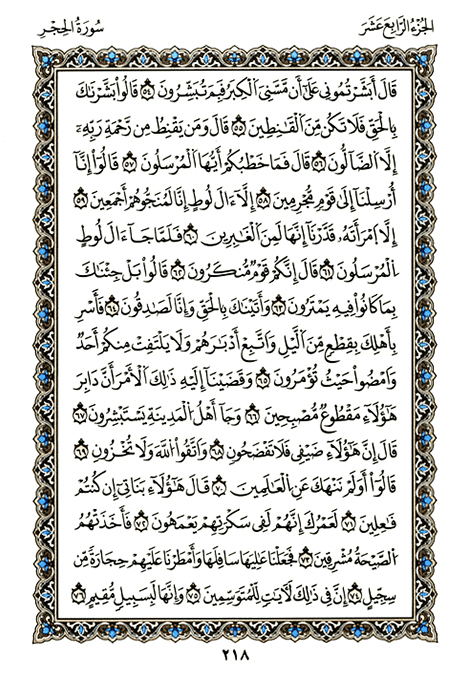 الجزء الرابع عشر
سورة الحجر
قَالَ أَبَشَّرْتُمُونِي عَلَىٰٓ أَن مَّسَّنِيَ ٱلْكِبَرُ فَبِمَ تُبَشِّرُونَ ۝٥٤ قَالُوا۟ بَشَّرْنَـٰكَ
بِٱلْحَقِّ فَلَا تَكُن مِّنَ ٱلْقَـٰنِطِينَ ۝٥٥ قَالَ وَمَن يَقْنَطُ مِن رَّحْمَةِ رَبِّهِۦٓ
إِلَّا ٱلضَّآلُّونَ ۝٥٦ قَالَ فَمَا خَطْبُكُمْ أَيُّهَا ٱلْمُرْسَلُونَ ۝٥٧ قَالُوٓا۟ إِنَّآ
أُرْسِلْنَآ إِلَىٰ قَوْمٍ مُّجْرِمِينَ ۝٥٨ إِلَّآ ءَالَ لُوطٍ إِنَّا لَمُنَجُّوهُمْ أَجْمَعِينَ ۝٥٩
إِلَّا ٱمْرَأَتَهُۥ قَدَّرْنَآ إِنَّهَا لَمِنَ ٱلْغَـٰبِرِينَ ۝٦٠ فَلَمَّا جَآءَ ءَالَ لُوطٍ
ٱلْمُرْسَلُونَ ۝٦١ قَالَ إِنَّكُمْ قَوْمٌ مُّنكَرُونَ ۝٦٢ قَالُوا۟ بَلْ جِئْنَـٰكَ
بِمَا كَانُوا۟ فِيهِ يَمْتَرُونَ ۝٦٣ وَأَتَيْنَـٰكَ بِٱلْحَقِّ وَإِنَّا لَصَـٰدِقُونَ ۝٦٤ فَأَسْرِ
بِأَهْلِكَ بِقِطْعٍ مِّنَ ٱلَّيْلِ وَٱتَّبِعْ أَدْبَـٰرَهُمْ وَلَا يَلْتَفِتْ مِنكُمْ أَحَدٌ
وَٱمْضُوا۟ حَيْثُ تُؤْمَرُونَ ۝٦٥ وَقَضَيْنَآ إِلَيْهِ ذَٰلِكَ ٱلْأَمْرَ أَنَّ دَابِرَ
هَـٰٓؤُلَآءِ مَقْطُوعٌ مُّصْبِحِينَ ۝٦٦ وَجَآءَ أَهْلُ ٱلْمَدِينَةِ يَسْتَبْشِرُونَ ۝٦٧
قَالَ إِنَّ هَـٰٓؤُلَآءِ ضَيْفِي فَلَا تَفْضَحُونِ ۝٦٨ وَٱتَّقُوا۟ ٱللَّهَ وَلَا تُخْزُونِ ۝٦٩
قَالُوٓا۟ أَوَلَمْ نَنْهَكَ عَنِ ٱلْعَـٰلَمِينَ ۝٧٠ قَالَ هَـٰٓؤُلَآءِ بَنَاتِيٓ إِن كُنتُمْ
فَـٰعِلِينَ ۝٧١ لَعَمْرُكَ إِنَّهُمْ لَفِي سَكْرَتِهِمْ يَعْمَهُونَ ۝٧٢ فَأَخَذَتْهُمُ
ٱلصَّيْحَةُ مُشْرِقِينَ ۝٧٣ فَجَعَلْنَا عَـٰلِيَهَا سَافِلَهَا وَأَمْطَرْنَا عَلَيْهِمْ حِجَارَةً مِّن
سِجِّيلٍ ۝٧٤ إِنَّ فِي ذَٰلِكَ لَـَٔايَـٰتٍ لِّلْمُتَوَسِّمِينَ ۝٧٥ وَإِنَّهَا لَبِسَبِيلٍ مُّقِيمٍ ۝٧٦
٢١٨